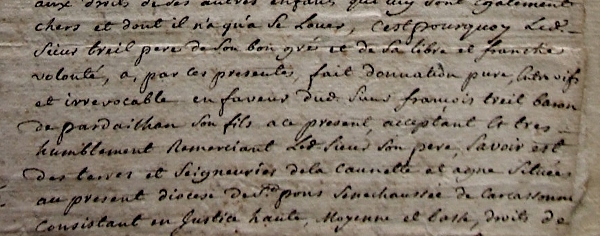 aux droits de ses autres enfans qui luy sont egalement
chers et dont il n'a qu'a se Louer, C'est pourquoy Led.
Sieur treil pere de son bon gres et de sa libre et franche
volonté, a, par ces presentes, fait donnation pure, entre vifs
et irrevocable en faveur dud. Sieur françois treil baron
de pardailhan son fils a ce present, acceptant et tres
humblement Remerciant Led. Sieur son pere, savoir est
des terres et Seigneuries de la Caunette et aigne Situées
au present diocese de St. pons Senechaussée de Carcassonne
Consistant en Justice haute, Moyenne et basse, droits de